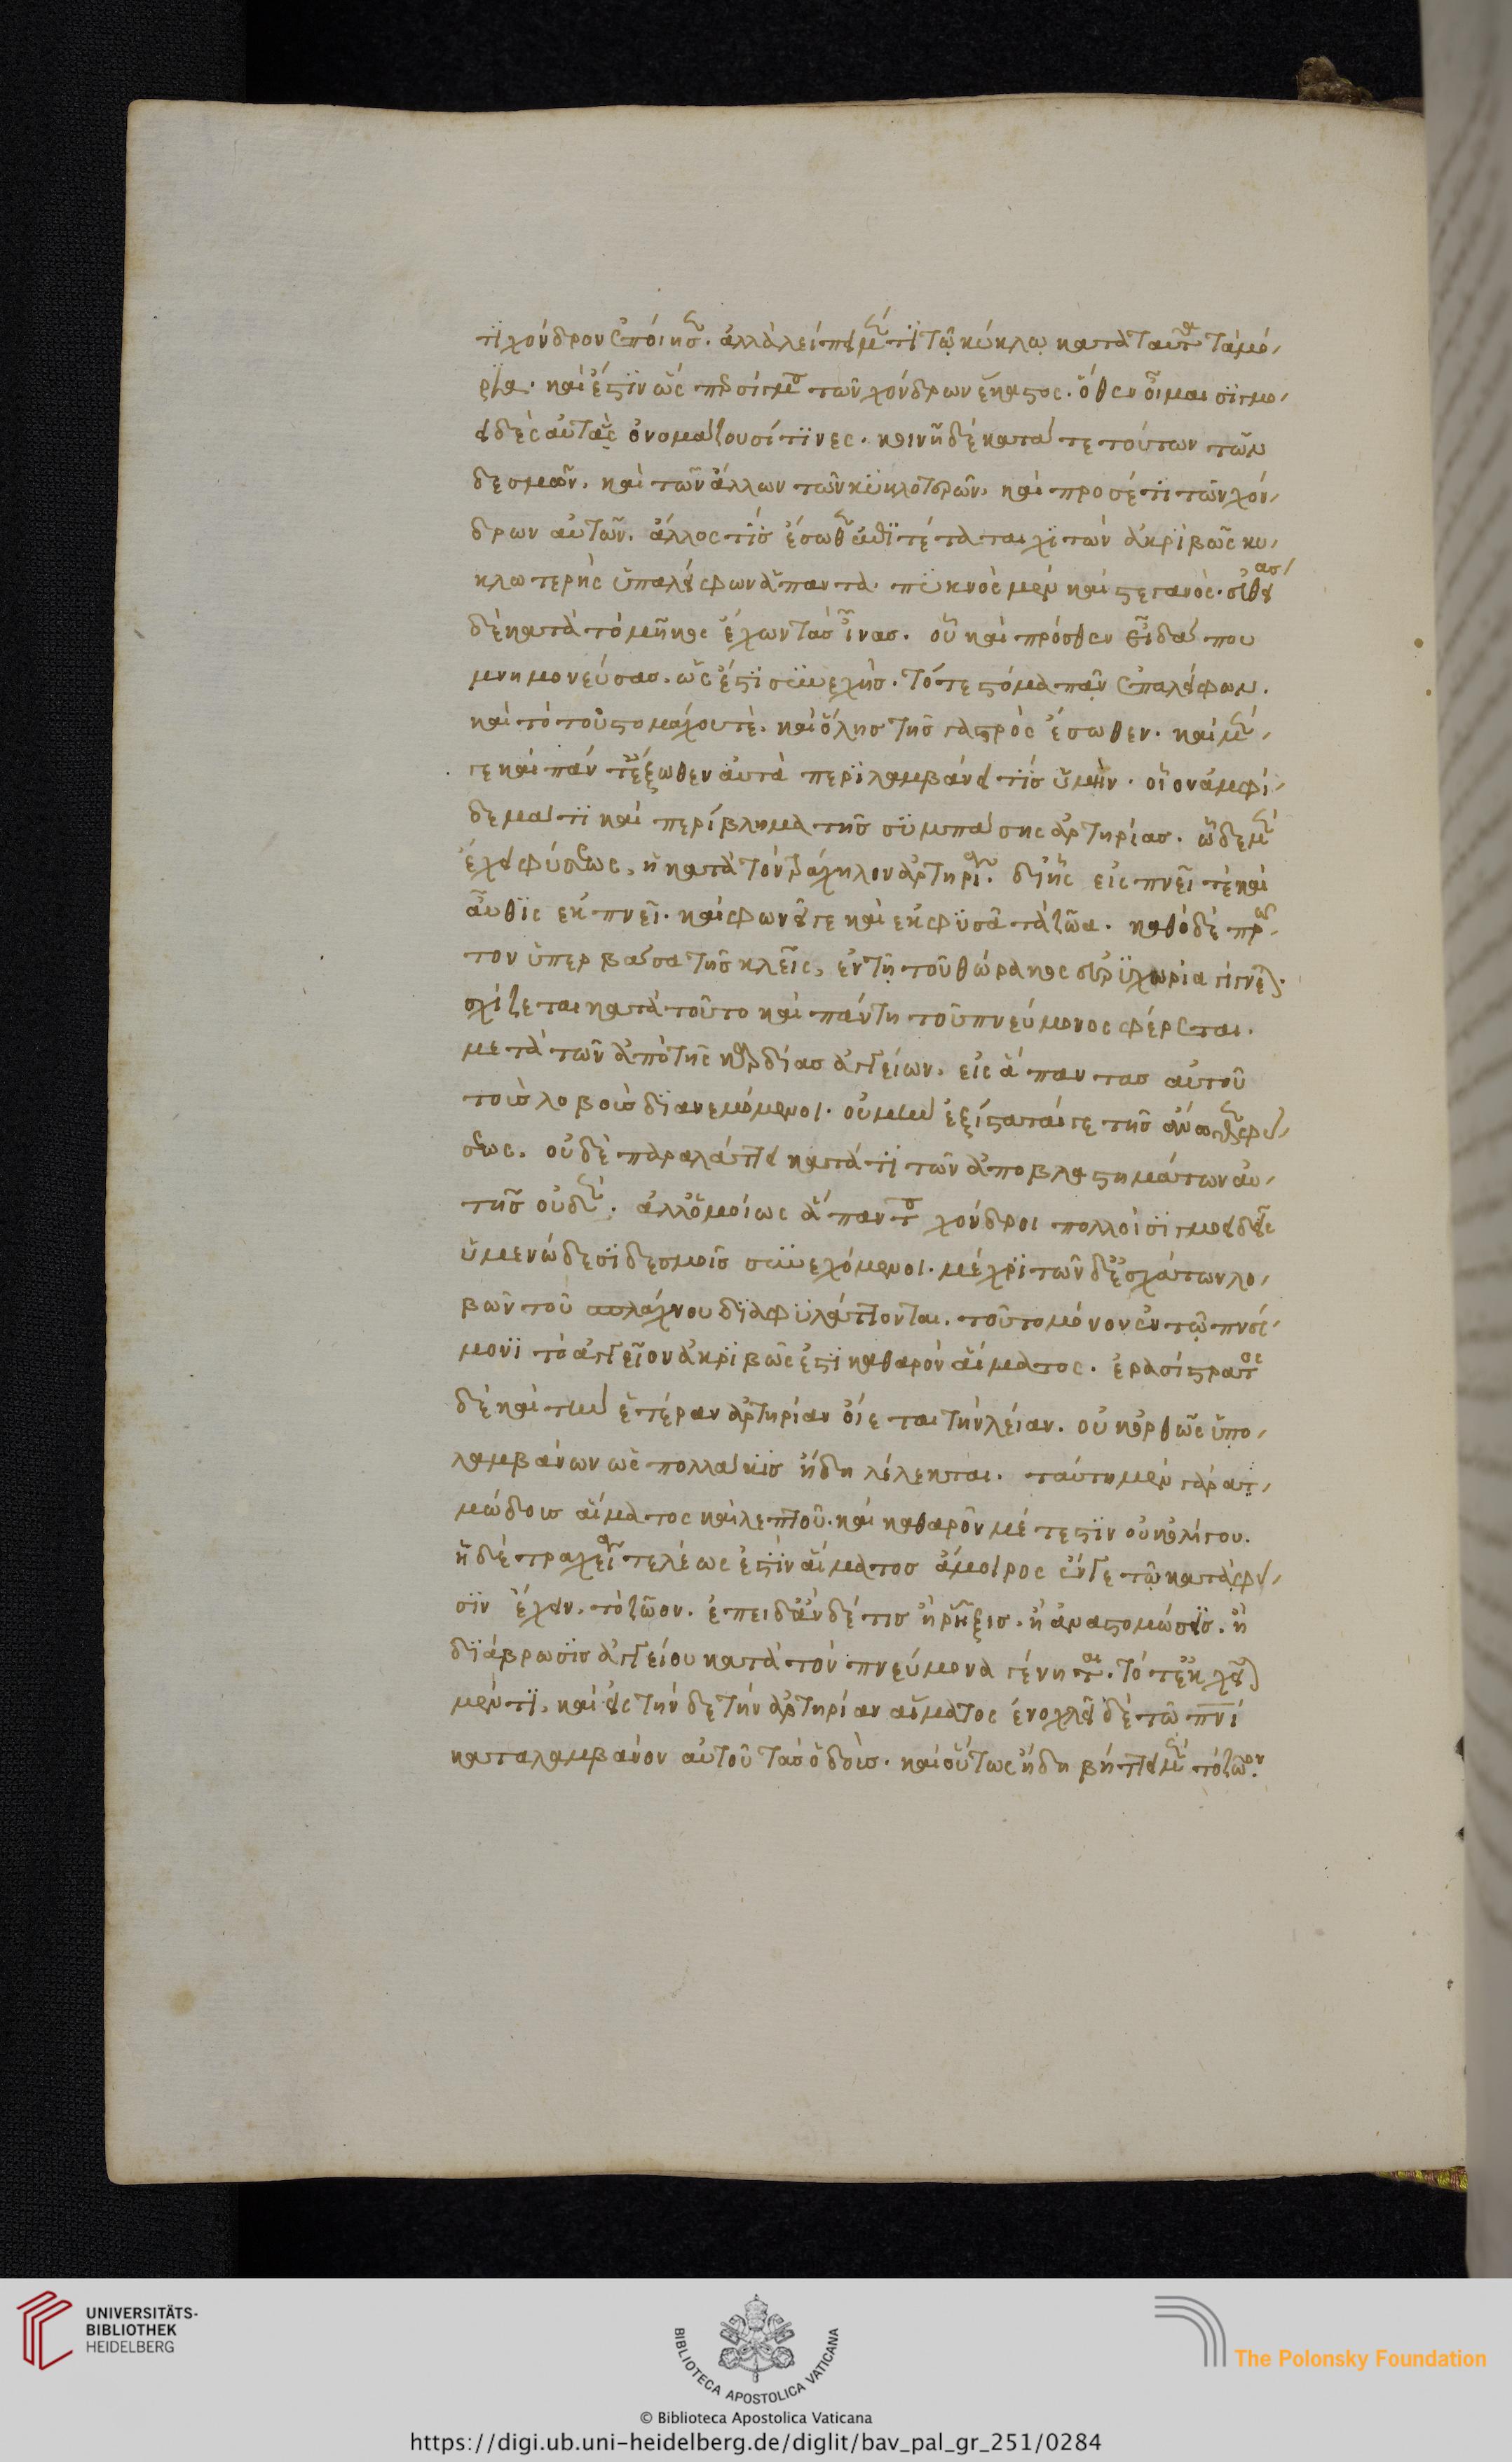 τι χόνδρον ἐποίησεν. ἀλλὰ λείπει μέν τι τῷ κύκλῳ κατὰ ταῦτα τὰ μό-
ρια. καὶ ἔστιν ὡς πρὸς σίγμα τῶν χόνδρων ἕκαστος. ὅθεν οἶμαι σιγμο-
ειδεῖς αὐτοὺς ὀνομάζουσί τινες. κοινῇ δὲ κατά τε τούτων τῶν
δεσμῶν, καὶ τῶν ἄλλων τῶν κυκλοτερῶν, καὶ προσέτι τῶν χόν-
δρων αὐτῶν, ἄλλος τις ἔσωθεν ἐπιτέταται χιτὼν ἀκριβῶς κυ-
κλωτερὴς ὑπαλείφων ἅπαντα. πυκνὸς μὲν καὶ στεγανὸς. εὐθείας
δὲ κατὰ τὸ μῆκος ἔχων τὰς ἶνας. οὗ καὶ πρόσθεν οἶδά που
μνημονεύσας, ὡς ἔστι συνεχὴς, τό τε στόμα πᾶν ἐπαλείφων.
καὶ τὸ τοῦ στομάχου τὲ, καὶ ὅλης τῆς γαστρὸς ἔσωθεν. καὶ μέν-
γε καὶ πάντ' ἔξωθεν αὐτὰ περιλαμβάνει τις ὑμὴν. οἷον ἀμφί-
δεμά τι καὶ περίβλημα τῆς συμπάσης ἀρτηρίας. ὧδε μὲν
ἔχει φύσεως, ἡ κατὰ τὸν τράχηλον ἀρτηρία. δι' ἧς εἰσπνεῖ τὲ καὶ
αὖθις ἐκπνεῖ. καὶ φωνεῖ τε καὶ ἐκφυσᾷ τὰ ζῷα. καθὸ δὲ πρῶ-
τον ὑπερβᾶσα τῆς κλεῖς, ἐν τῇ τοῦ θώρακος εὐρυχωρία γίνεται.
σχίζεται κατὰ τοῦτο καὶ πάντη τοῦ πνεύμονος φέρεται.
μετὰ τῶν ἀπὸ τῆς καρδίας ἀγγείων, εἰς ἅπαντας αὐτοῦ
τοὺς λοβοὺς διανεμόμενοι. οὐ μὴν ἐξίσταταί γε τῆς ἄνωθεν φύ-
σεως. οὐδὲ παραλάττει κατά τι τῶν ἀποβλαστημάτων αὐ-
τῆς οὐδέν. ἀλλ' ὁμοίως ἅπαντος χόνδροι πολλοὶ σιγμοειδεῖς
ὑμενώδεσι δεσμοῖς συνεχόμενοι. μέχρι τῶν δ' ἐσχάτων λο-
βῶν τοῦ σπλάχνου διαφυλάττονται. τοῦτο μόνον ἐν τῷ πνεύ-
μονι τὸ ἀγγεῖον ἀκριβῶς ἔστι καθαρὸν αἵματος. ἐρασίστρατος
δὲ καὶ τὴν ἑτέραν ἀρτηρίαν οἴεται τὴν λείαν. οὐκ ὀρθῶς ὑπο-
λαμβάνων ὡς πολλάκις ἤδη λέλεκται. ταύτη μὲν γὰρ ἀτ-
μώδους αἵματος καὶ λεπτοῦ. καὶ καθαροῦ μέτεστιν οὐκ ὀλίγου.
ἡ δὲ τραχεῖα τελέως ἐστὶν αἵματος ἄμοιρος ἔν γε τῷ κατὰ φύ-
σιν ἔχειν, τὸ ζῷον. ἐπειδὰν δέ τις ἢ ῥῆξις, ἢ ἀναστομώσις, ἢ
διάβρωσις ἀγγείου κατὰ τὸν πνεύμονα γένηται. τότ' ἐκχεῖται
μέν τι, καὶ εἰς τήνδε τὴν ἀρτηρίαν αἵματος ἐνοχλεῖ δὲ τῷ πνι
καταλαμβάνον αὐτοῦ τὰς ὁδοὺς. καὶ οὕτως ἤδη βήττει μὲν τὸ ζῷον.
UNIVERSITÄTS-
BIBLIOTHEK
HEIDELBERG
BIBLIOTECA APOSTOLICA VATICANA
The Polonsky Foundation
© Biblioteca Apostolica Vaticana
https://digi.ub.uni-heidelberg.de/diglit/bav_pal_gr_251/0284